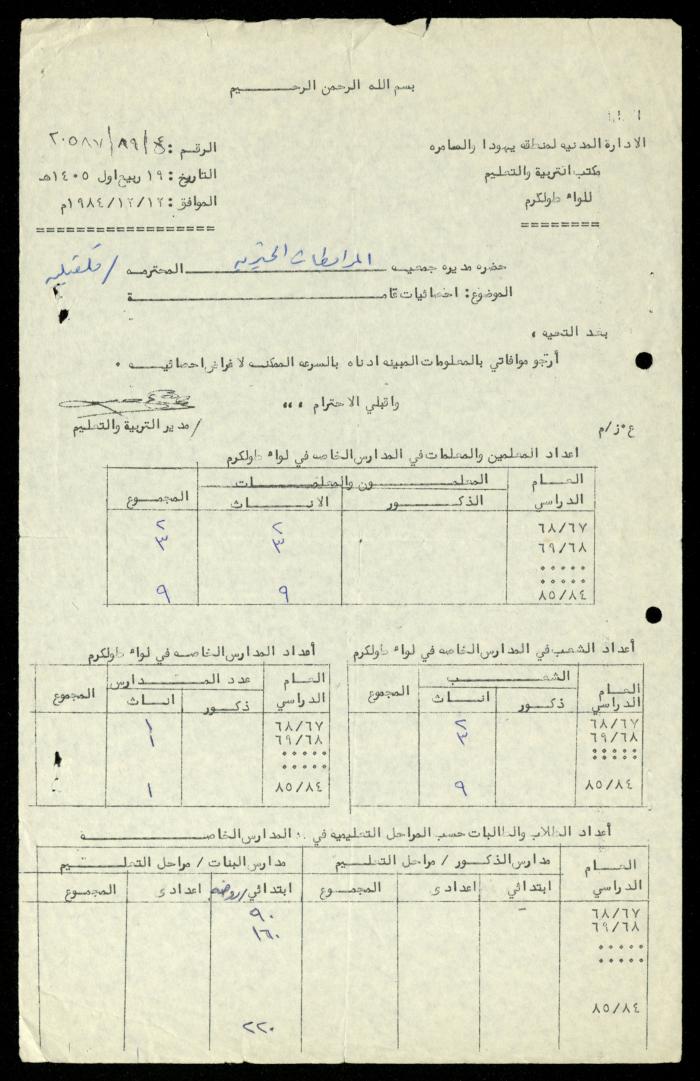 بسم الله الرحمن الرحيم
الادارة المدنيه لمنطقه يهودا والسامره
مكتب التربية والتعليم
للواء طولكرم
الرقم :
التاريخ : ١٩ ربيع اول ١٤٠٥هـ
الموافق : ١٩٨٤/١٢/١٢م
حضره مديره جمعيه المرابطات الخيريه المحترمه / قلقيليه
الموضوع : احصائيات عامة
بعد التحيه ،
أرجو موافاتي بالمعلومات المبينه ادناه بالسرعه الممكنه لاغراض احصائيه .
واقبلي الاحترام ،،،
/ مدير التربية والتعليم
ع.ز/م
أعداد المعلمين والمعلمات في المدارس الخاصه في لواء طولكرم
العام الدراسي المعلمون والمعلمات المجموع
الذكور الاناث
٦٨/٦٧ ٢ ٢
٦٩/٦٨ ٣ ٣
.....
.....
٨٥/٨٤ ٩ ٩
أعداد الشعب في المدارس الخاصه في لواء طولكرم
العام الدراسي الشعب المجموع
ذكور اناث
٦٨/٦٧ ٢
٦٩/٦٨ ٣
.....
.....
٨٥/٨٤ ٩
أعداد المدارس الخاصه في لواء طولكرم
العام الدراسي عدد المدارس المجموع
ذكور اناث
٦٨/٦٧ ١
٦٩/٦٨ ١
.....
.....
٨٥/٨٤ ١
أعداد الطلاب والطالبات حسب المراحل التعليميه في .. المدارس الخاصه
العام الدراسي مدارس الذكور / مراحل التعليم مدارس البنات / مراحل التعليم
ابتدائي اعدادى المجموع ابتدائي/روضه اعدادى المجموع
٦٨/٦٧ ٩٠
٦٩/٦٨ ١٦٠
.....
.....
٨٥/٨٤
٢٢٠